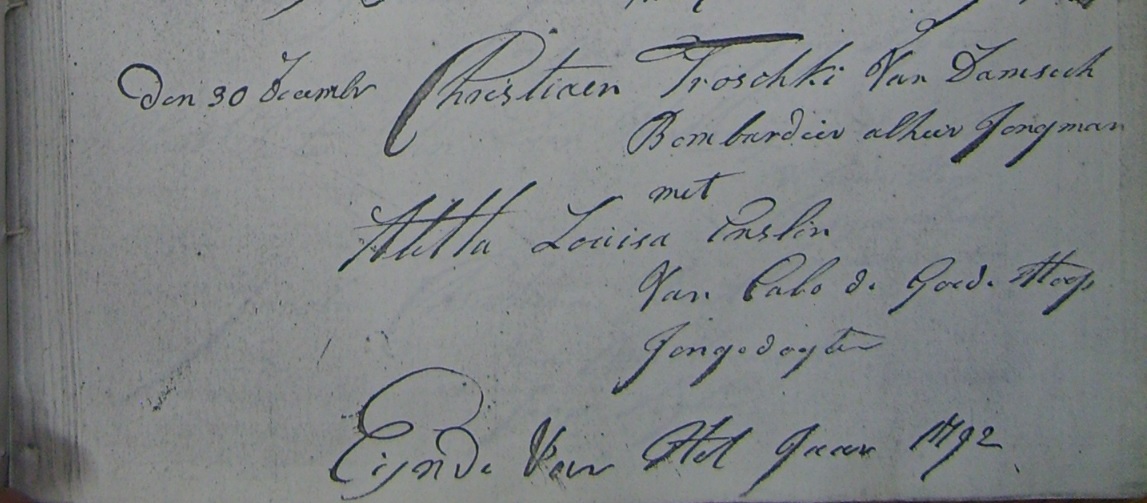 Den 30 Decembr Christiaen Troschki Van Damseck
Bombardier alhier Jongman
met
Aletta Louisa Enslin
Van Cabo de Goede Hoop
Jongedogter
Eijnde Van Het Jaar 1792